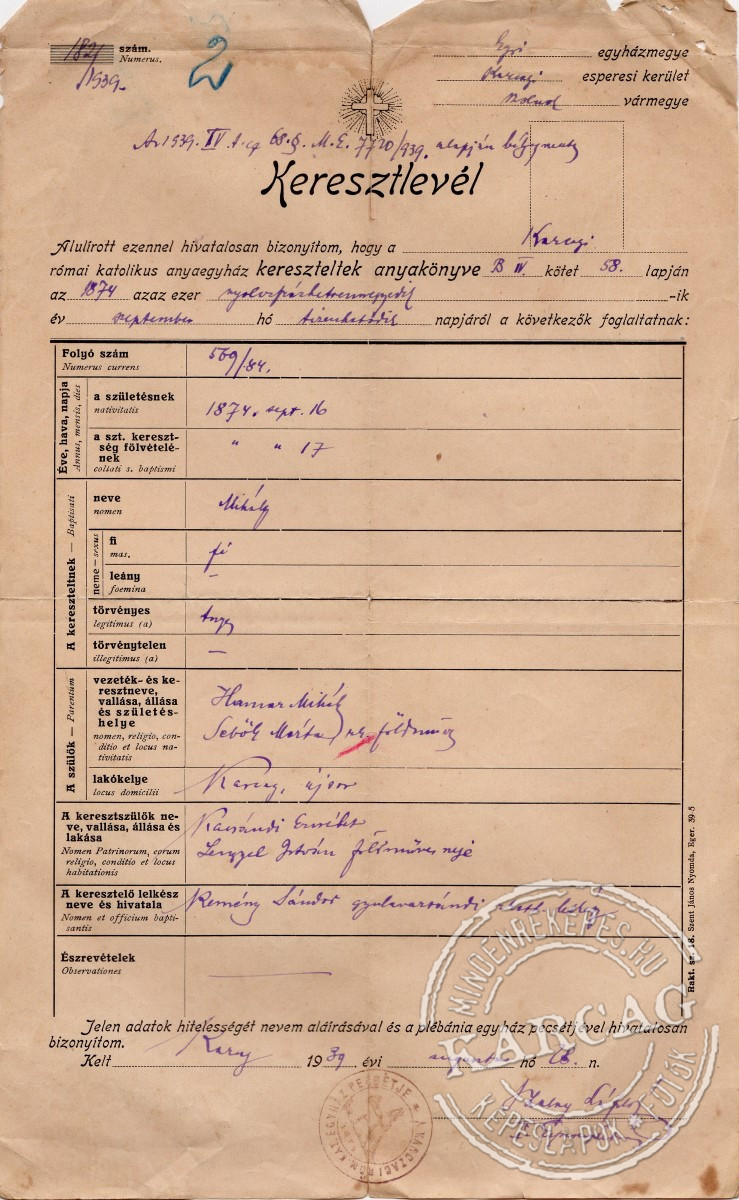 182/1939. szám.
Numerus.
2
Egri egyházmegye
Karcagi esperesi kerület
Szolnok vármegye
Az 1939. IV. t. cz 68. §. M. E. 7720/939. alapján bélyegmentes
Keresztlevél
Alulírott ezennel hivatalosan bizonyítom, hogy a Karcagi
római katolikus anyaegyház kereszteltek anyakönyve B IV. kötet 58. lapján
az 1874 azaz ezer nyolcszázhetvennegyedik -ik
év szeptember hó tizenhatodik napjáról a következők foglaltatnak:
Folyó szám
Numerus currens
569/84.
Éve, hava, napja
Annus, mensis, dies
a születésnek
nativitatis
1874. sept. 16
a szt. kereszt-
ség fölvételé-
nek
collati s. baptismi
" " 17
A kereszteltnek — Baptisati
neve
nomen
Mihály
neme — sexus
fi
mas.
fi
leány
foemina
—
törvényes
legitimus (a)
törvénytelen
illegitimus (a)
—
A szülők — Parentum
vezeték- és ke-
resztneve,
vallása, állása
és születés-
helye
nomen, religio, con-
ditio et locus na-
tivitatis
Hamar Mihály
Sebők Mária rk. földműv
lakókelye
locus domicilii
Karcag, újsor
A keresztszülők ne-
ve, vallása, állása és
lakása
Nomen Patrinorum, eorum
religio, conditio et locus
habitationis
Erzsébet
István földműves neje
A keresztelő lelkész
neve és hivatala
Nomen et officium bapti-
santis
Kemény Sándor gyulavarsándi
Észrevételek
Observationes
Rakt. sz. 18. Szent János Nyomda, Eger. 39-5
Jelen adatok hitelességét nevem aláírásával és a plébánia egyház pecsétjével hivatalosan
bizonyítom.
Kelt Karcag 1939 évi augusztus hó 16. n.
László
MINDENREKEPES.HU
KARCAG
KÉPESLAPOK * FOTÓK